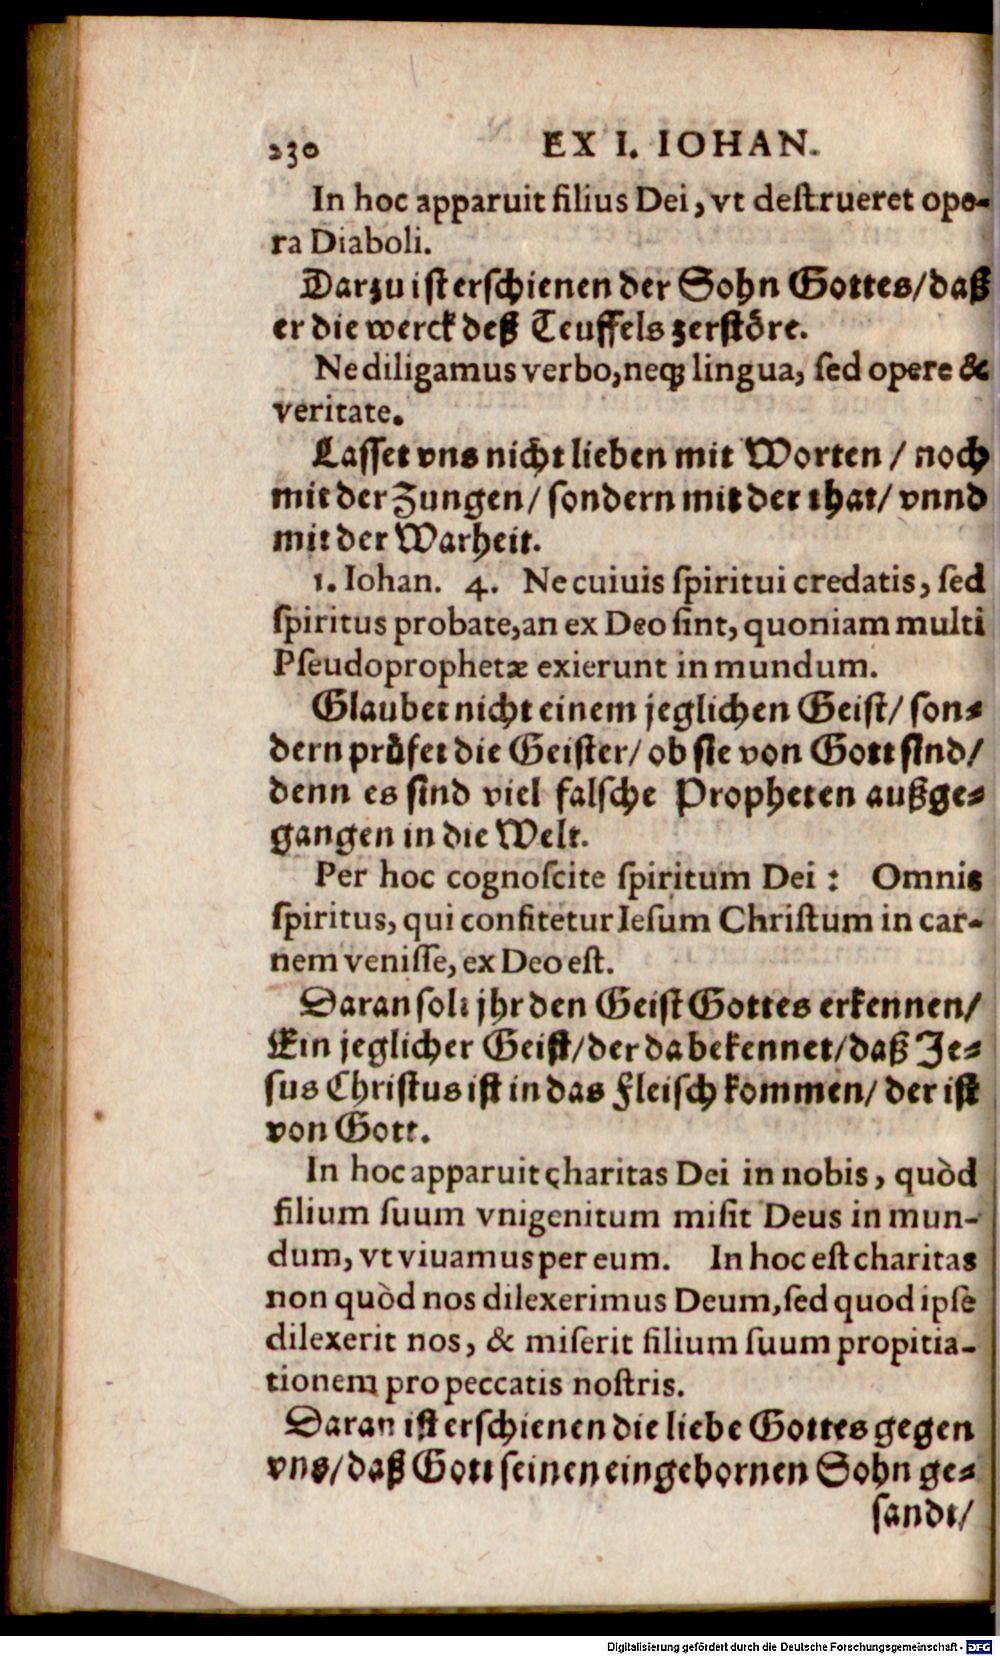 230 EX I. IOHAN.
In hoc apparuit filius Dei, vt deſtrueret ope-
ra Diaboli.
Darzu iſt erſchienen der Sohn Gottes/ daß
er die werck deß Teuffels zerſtöre.
Ne diligamus verbo, neq; lingua, ſed opere &
veritate.
Laſſet vns nicht lieben mit Worten / noch
mit der Zungen/ ſondern mit der that/ vnnd
mit der Warheit.
1. Iohan. 4. Ne cuiuis ſpiritui credatis, ſed
ſpiritus probate, an ex Deo ſint, quoniam multi
Pſeudoprophetæ exierunt in mundum.
Glaubet nicht einem jeglichen Geiſt/ ſon-
dern prüfet die Geiſter/ ob ſie von Gott ſind/
denn es ſind viel falſche Propheten außge-
gangen in die Welt.
Per hoc cognoſcite ſpiritum Dei : Omnis
ſpiritus, qui confitetur Ieſum Chriſtum in car-
nem veniſſe, ex Deo eſt.
Daran ſolt jhr den Geiſt Gottes erkennen/
Ein jeglicher Geiſt/ der da bekennet/ daß Je-
ſus Chriſtus iſt in das Fleiſch kommen/ der iſt
von Gott.
In hoc apparuit charitas Dei in nobis, quòd
filium ſuum vnigenitum miſit Deus in mun-
dum, vt viuamus per eum. In hoc eſt charitas
non quòd nos dilexerimus Deum, ſed quod ipſe
dilexerit nos, & miſerit filium ſuum propitia-
tionem pro peccatis noſtris.
Daran iſt erſchienen die liebe Gottes gegen
vns/ daß Gott ſeinen eingebornen Sohn ge-
ſandt/
Digitalisierung gefördert durch die Deutsche Forschungsgemeinschaft - DFG